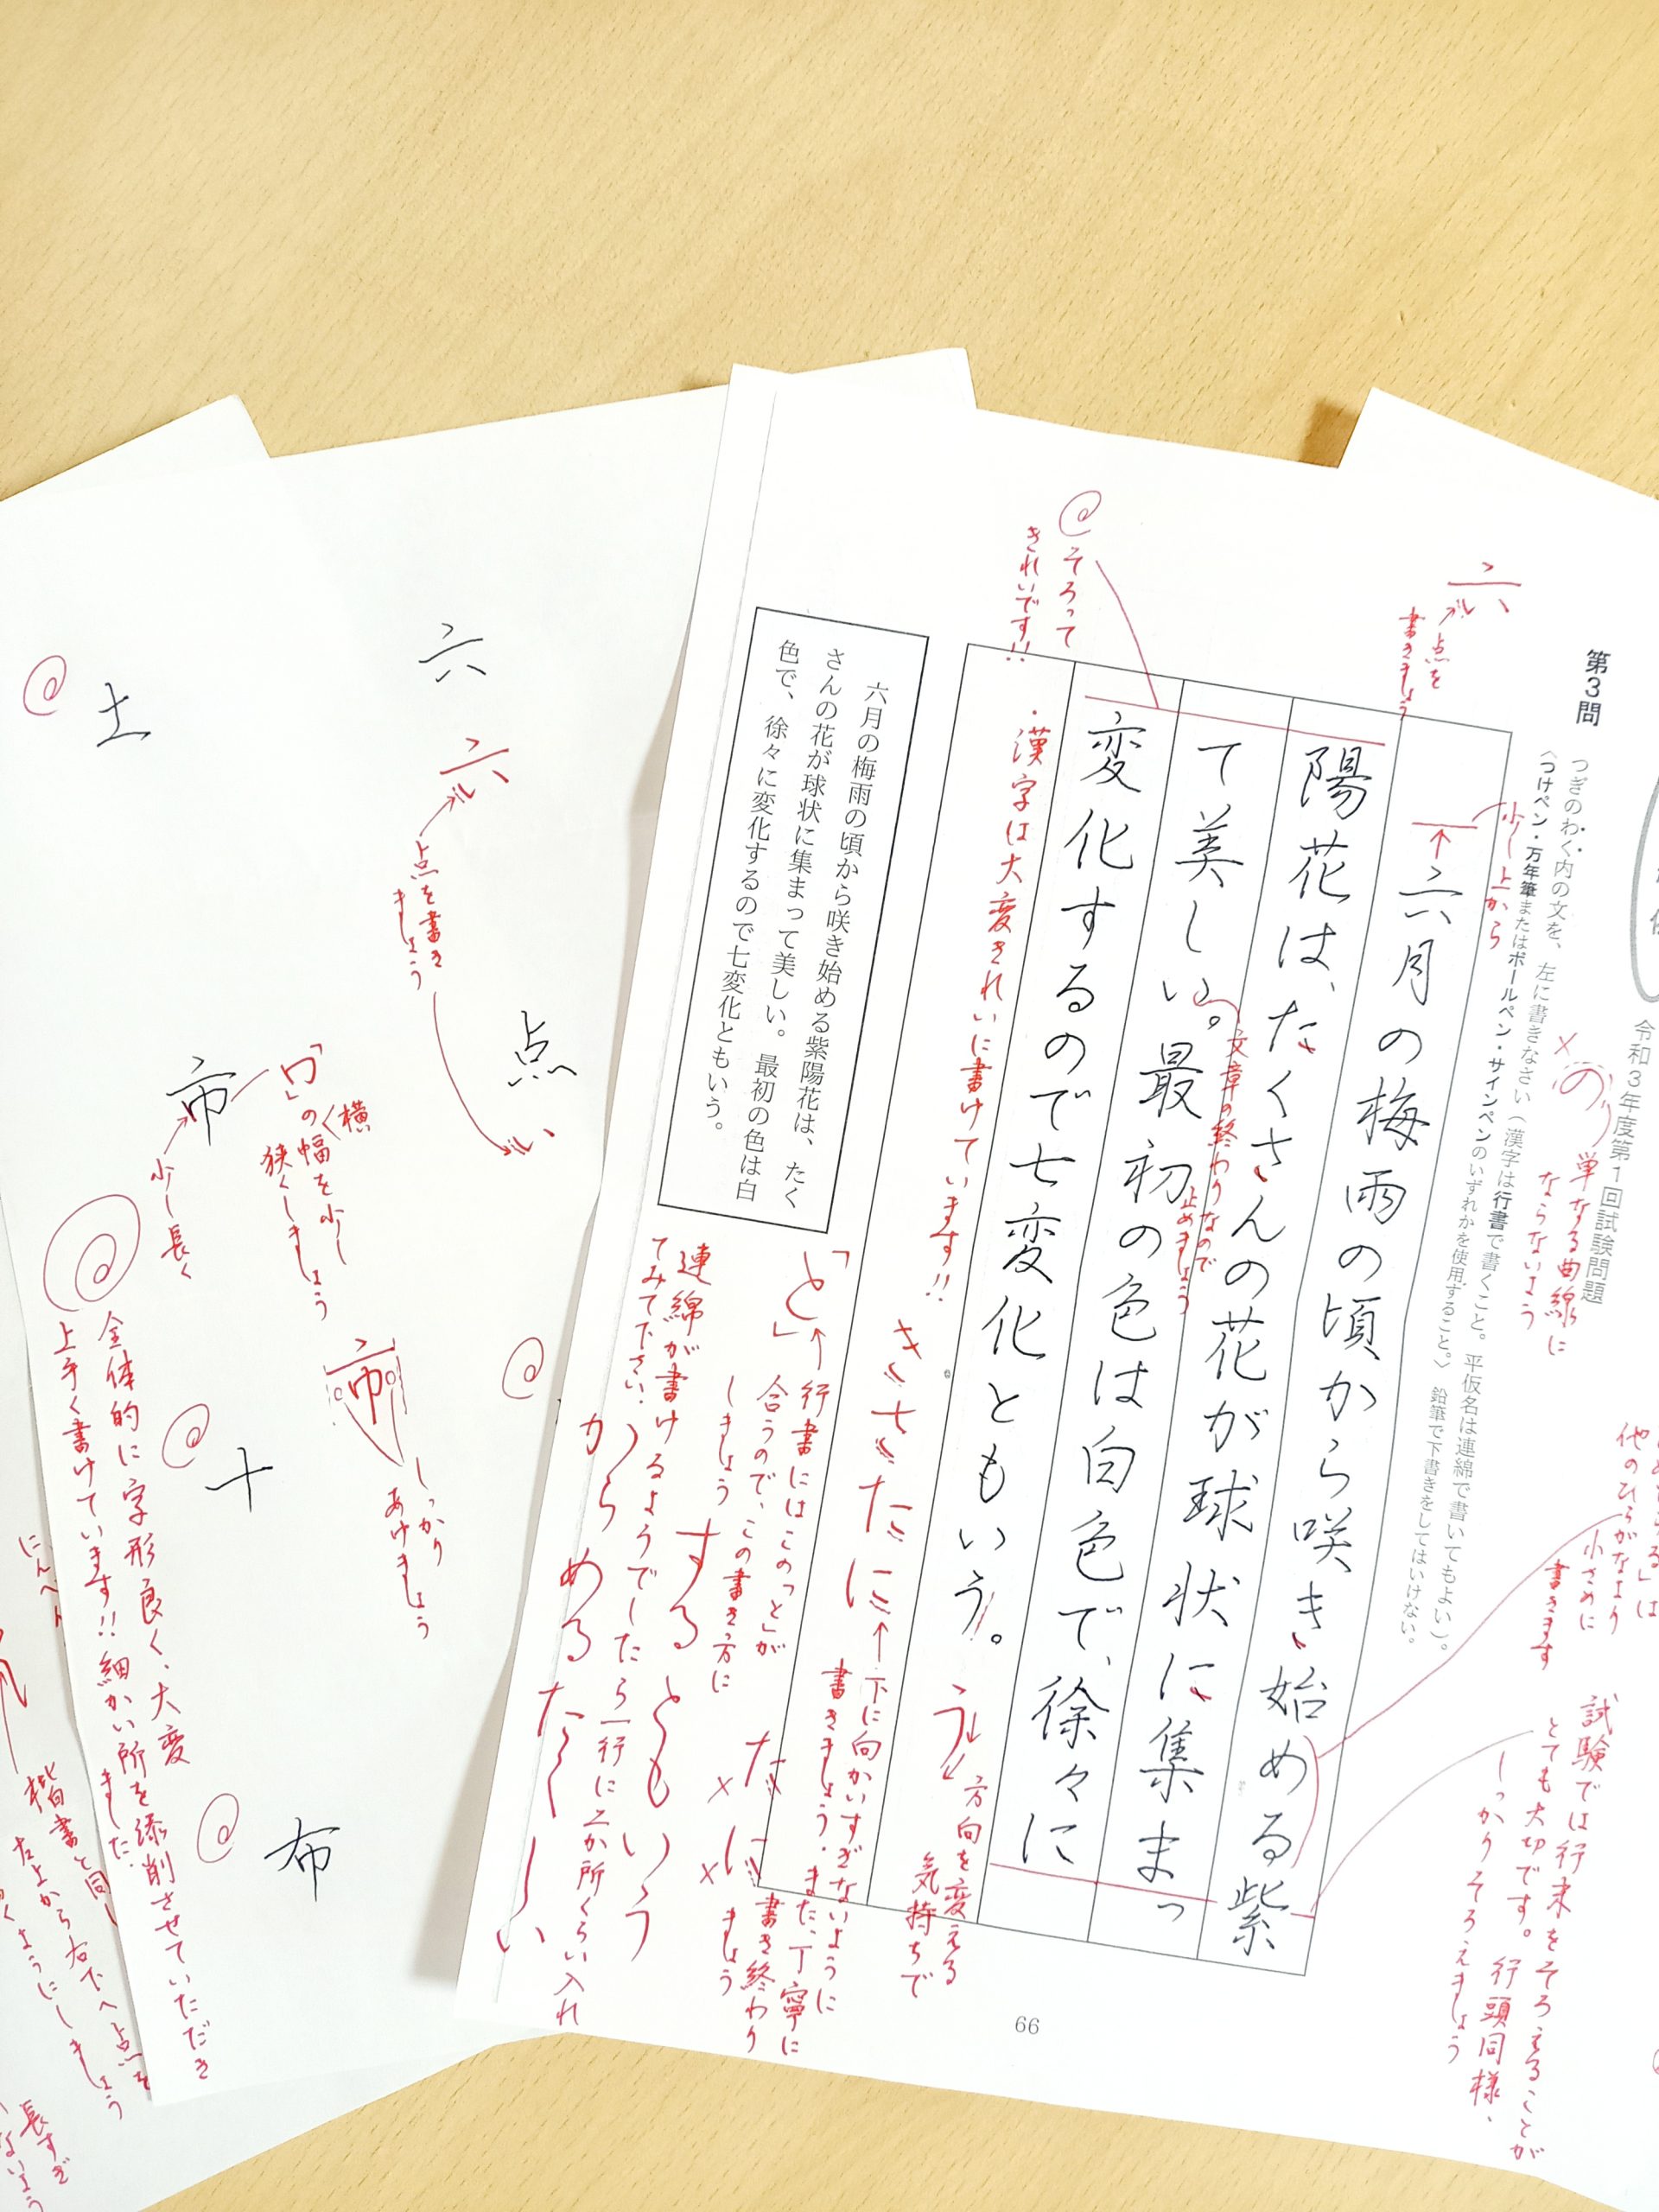 第3問
つぎのわく内の文を、左に書きなさい（漢字は行書で書くこと。平仮名は連綿で書いてもよい）。
〈つけペン・万年筆またはボールペン・サインペンのいずれかを使用すること。〉鉛筆で下書きをしてはいけない。
令和3年度第1回試験問題
六
点を
書きましょう
少し上から
の
単なる曲線に
ならないよう
六月の梅雨の頃から咲き始める紫
陽花は、たくさんの花が球状に集まっ
て美しい。最初の色は白色で、徐々に
変化するので七変化ともいう。
そろって
きれいです!!
文章の終わりなので
止めましょう
・漢字は大変きれいに書けています!!
他のひらがなより
小さめに
書きます
試験では行末をそろえることが
とても大切です。行頭同様、
しっかりそろえましょう
う
方向を変える
気持ちで
きさたに
下に向かいすぎないように
書きましょう。また、丁寧に
書き終わり
ましょう
た
に
「と」
行書にはこの「と」が
合うので、この書き方に
しましょう
する ともいう
連綿が書けるようでしたら一行に二か所くらい入れ
てみて下さい。
から める たく しい
六月の梅雨の頃から咲き始める紫陽花は、たく
さんの花が球状に集まって美しい。最初の色は白
色で、徐々に変化するので七変化ともいう。
66
六
六
点を書き
ましょう
点
土
市
「口」の幅を少し
横
狭くしましょう
少し長く
市
しっかり
あけましょう
十
布
全体的に字形良く、大変
上手く書けています!!細かい所を添削させていただき
ました。
にんべん
楷書と同じ
左上から右下へ点を
ようにしましょう
長すぎ
ないよう